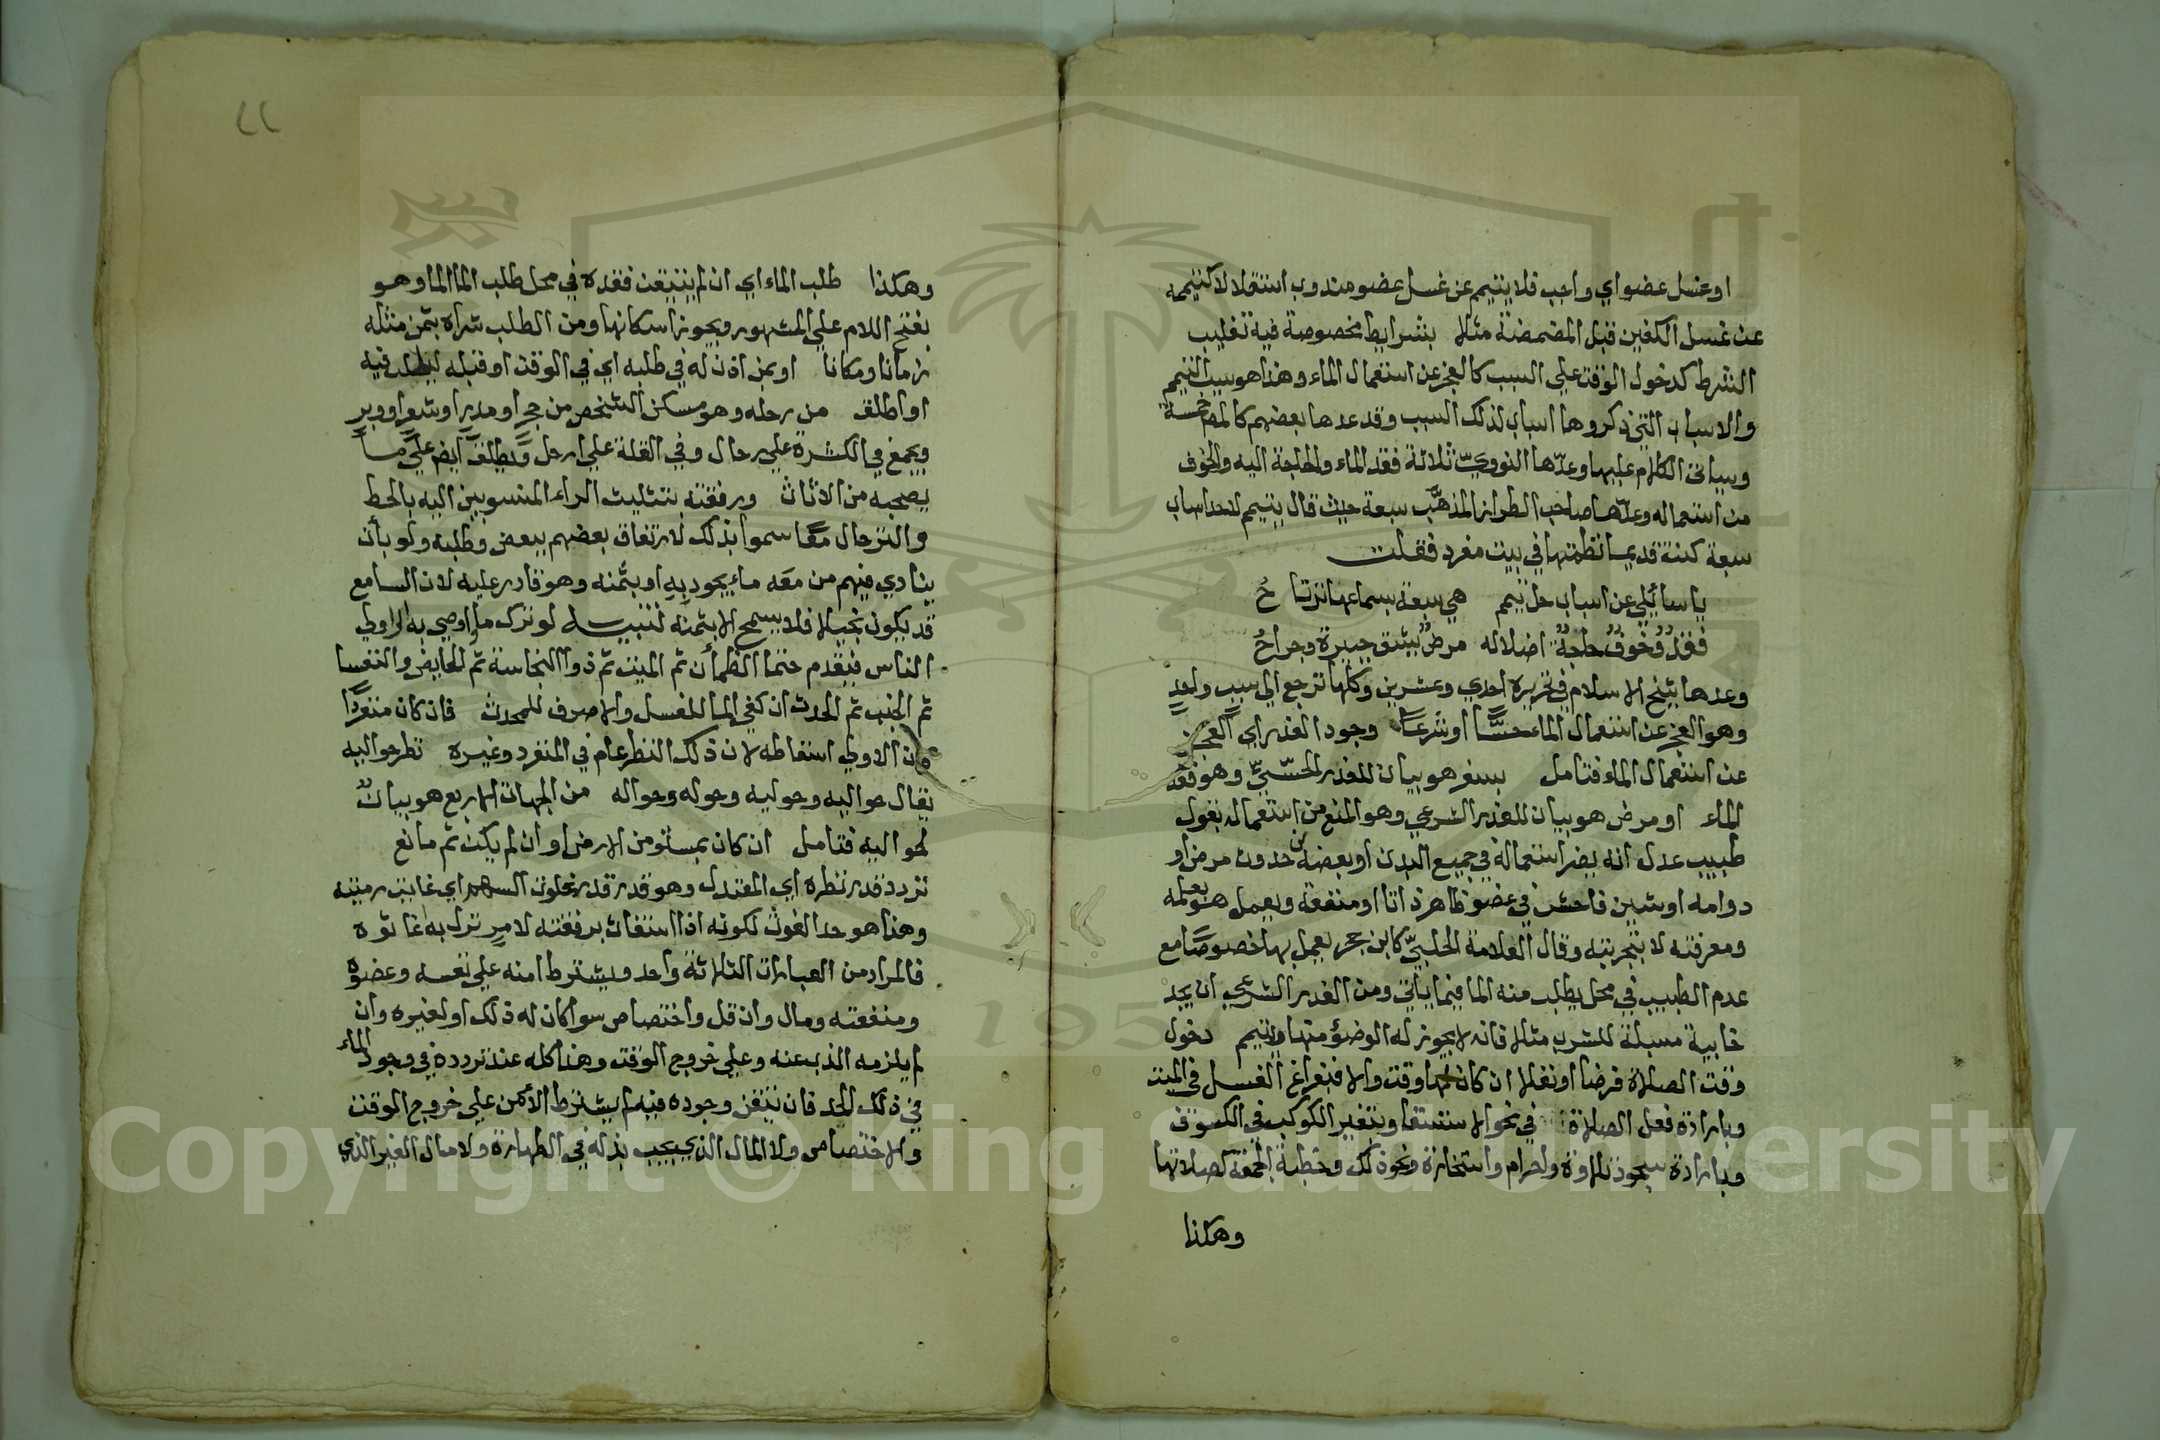 او غسل عضو اي واجب فلا يتيمم عن غسل عضو مندوب استقلالا كتيممه
عن غسل الكفين قبل المضمضة مثلا بشرايط مخصوصة فيه تغليب
الشرط كدخول الوقت علي السبب كالعجز عن استعمال الماء وهذا هو سبب التيمم
والاسباب التي ذكروها اسباب لذلك السبب وقد عدها بعضهم كالمص خمسة
وسياتي الكلام عليها وعدّها النوويّ ثلاثة فقد الماء والحاجة اليه والخوف
من استعماله وعدّها صاحب الطراز المذهّب سبعة حيث قال يتيمم لاحد اسباب
سبعة كنت قديما نظمتها في بيت مفرد فقلت
ياسائيلي عن اسباب حل تيمم هي سبعة بسماعها ترتاحُ
فقدٌ وخوفٌ حاجةٌ اضلاله مرضٌ يشق جبيرة وجراحُ
وعدها شيخ الاسلام في تحريره احدي وعشرين وكلها ترجع الي سبب واحدٍ
وهو العجز عن استعمال الماء حسًّا او شرعًا وجود العذر اي العجز
عن استعمال الماء فتامل بسفر هو بيان للعذر الحسّيّ وهو فقد
الماء او مرض هو بيان للعذر الشرعي وهو المنع من استعماله بقول
طبيب عدل انه يضر استعماله في جميع البدن او بعضه من حدوث مرض او
دوامه او شين فاحش في عضو ظاهر ذاتا او منفعة ويعمل هو بعلمه
ومعرفته لا بتجربته وقال العلامة الحلبيّ كابن حجر يعمل بها خصوصًا مع
عدم الطبيب في محل يطلب منه الما فيما ياتي ومن العذر الشرعي ان يجد
خابية مسبلة للشرب مثلا فانه لا يجوز له الوضؤ منها ويتيمم دخول
وقت الصلاة فرضا او نفلا ان كان لها وقت والا فبفراغ الغسل في الميت
وبارادة فعل الصلاة في نحو الاستسقا وبتغير الكوكب في الكسوف
وبارادة سجود تلاوة واحرام واستخارة ونحو ذلك وخطبة الجمعة كصلاتها
وهكذا
٢٢
وهكذا طلب الماء اي ان لم يتيقن فقده في محل طلب الماالما وهو
بفتح اللام علي المشهور ويجوز اسكانها ومن الطلب شراه بثمن مثله
زمانا ومكانا او بمن اذن له في طلبه اي في الوقت او قبله ليطلب فيه
او اطلق من رحله وهو مسكن الشخص من حجر او مدرٍ او شعرٍ او وبرٍ
ويجمع في الكثرة علي رحال وفي القلة علي ارحل وَيطلق ايضم علي ما
يصحبه من الاثاث ورفقته بتثليث الراء المنسوبين اليه بالحط
والترحال معًا سموا بذلك لارتفاق بعضهم ببعض وطلبه ولو بأن
ينادي فيهم من معَه ماء يجود بِهِ او بثمنه وهو قادر عليه لان السامع
قد يكون بخيلا فلا يسمح الا بثمنه تنبيه لو ترك ما اوصي به لاولي
الناس فيقدم حتما الظمأن ثم الميت ثم ذو االنجاسة ثم الحايض والنفسا
ثم الجنب ثم الحدث ان كفي الما للغسل والا صرف للمحدث فان كان منفردًا
كان الاولي اسقاطه لان ذلك النظر عام في المنفرد وغيره نظر حواليه
يقال حواليه وحوليه وحوله وحواله من الجهات الاربع هو بيانٌ
لحواليه فتامل ان كان بمستوٍ من الارض او ان لم يكن ثم مانع
تردد قدر نظره اي المعتدل وهو قدر قدر غلوة السهم اي غايت رميته
وهذا هو حد الغوث لكونه اذا استغاث برفقته لامرٍ نزل به غاثوه
فالمراد من العبارات الثلاثة واحد ويشترط امنه علي نفسه وعضوه
ومنفعته ومال وان قل واختصاص سوا كان له ذلك او لغيره وان
لم يلزمه الذب عنه وعلي خروج الوقت وهذا كله عند تردده في وجود الماء
في ذلك الحد فان تيقن وجوده فيه لم يشترط الأمن علي خروج الوقت
والاختصاص ولا المال الذي يجب بذله في الطهارة ولا مال الغير الذي
Copyright © King Saud University
1957